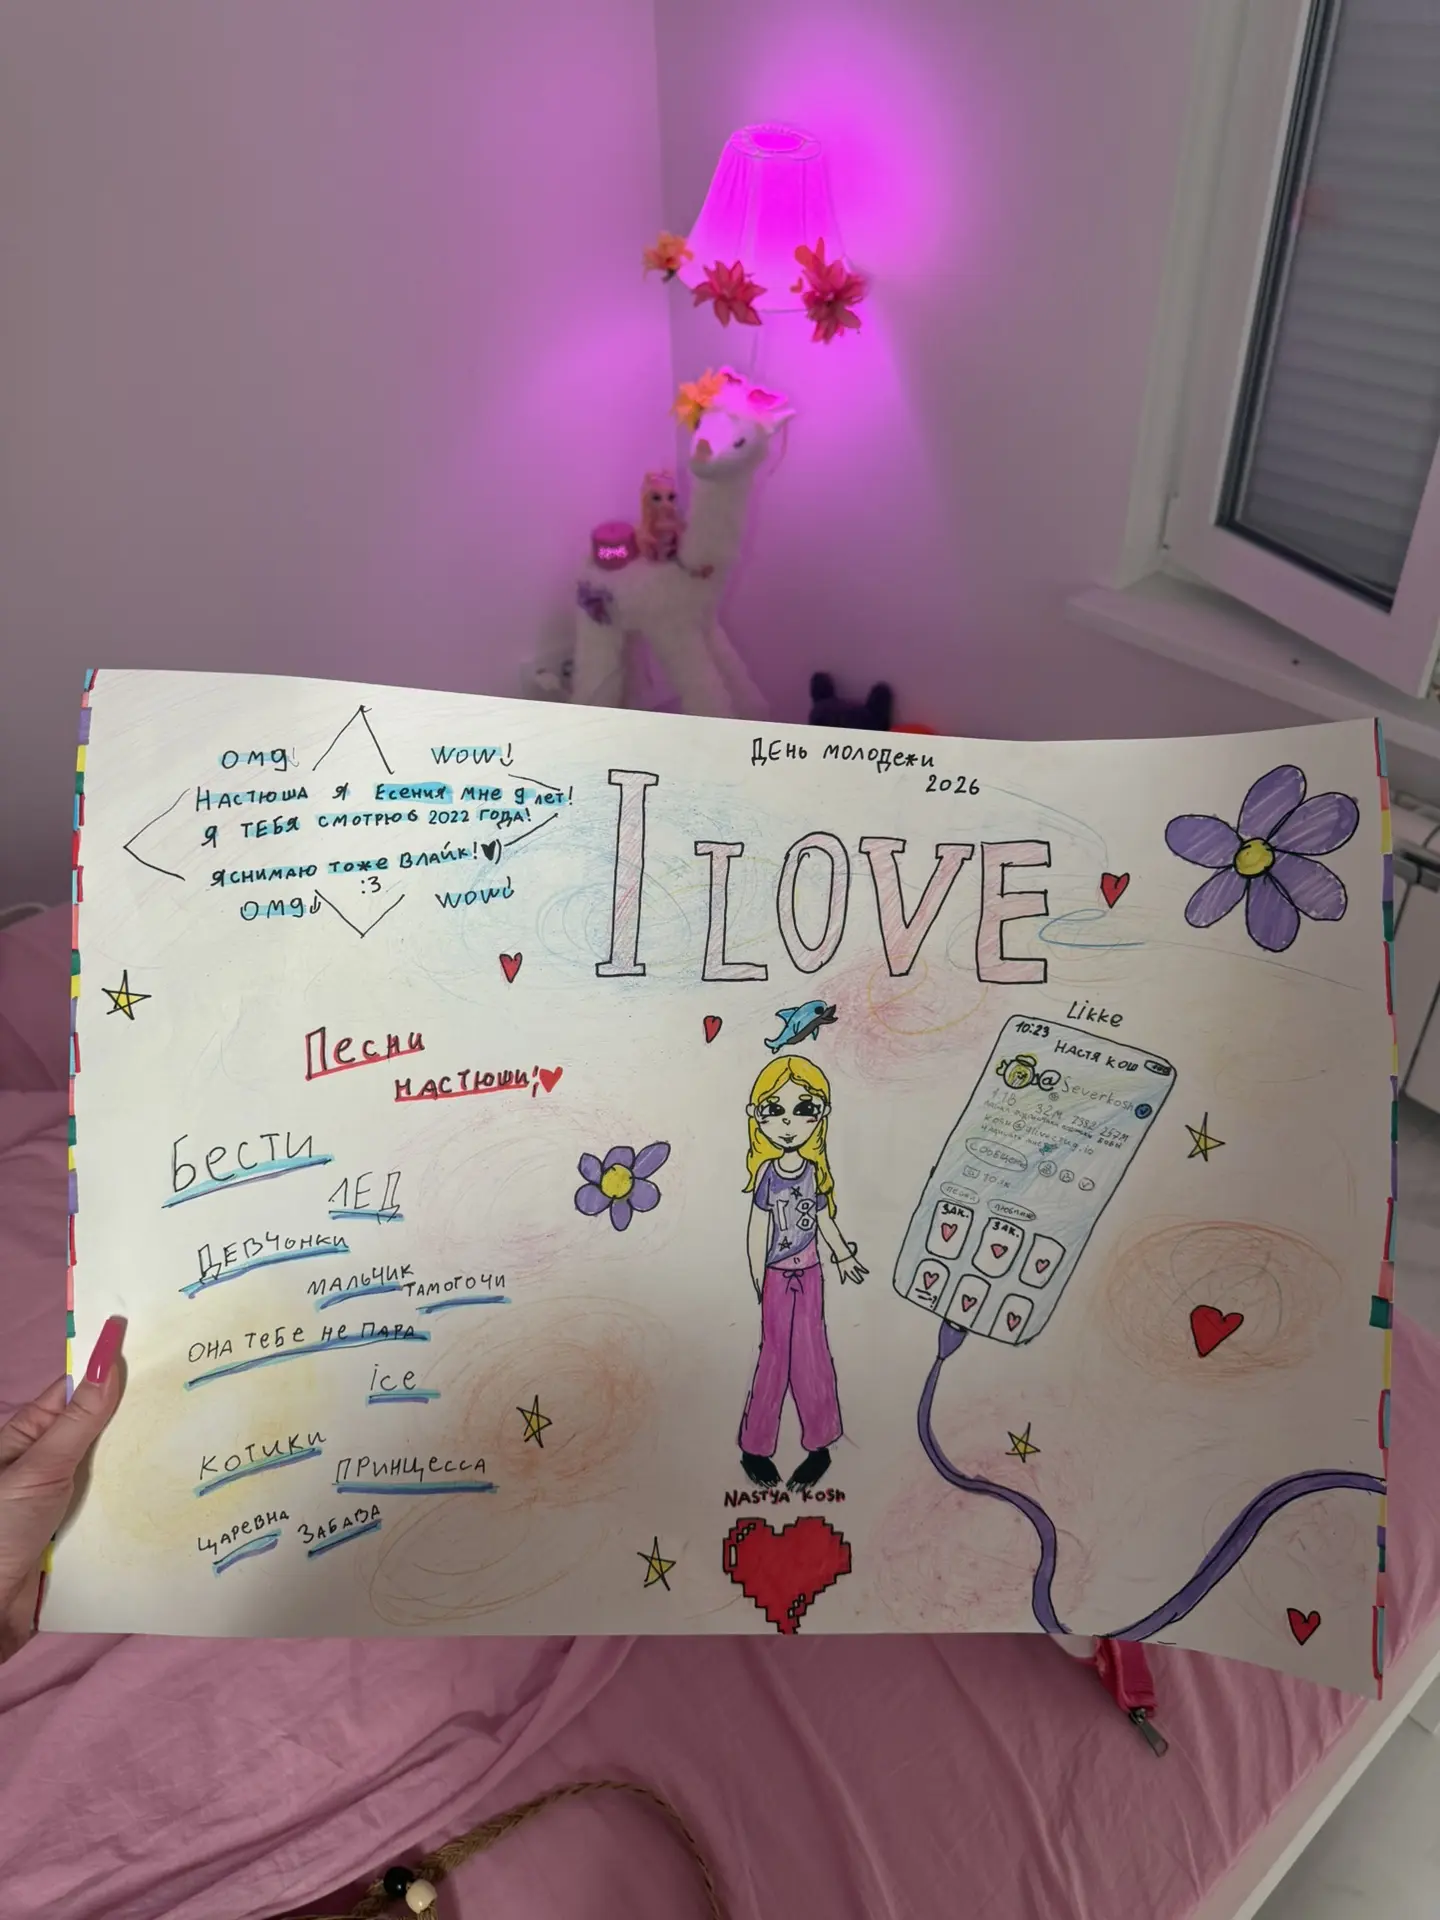 День молодежи
2026
I LOVE
OMG!
WOW!
Настюша я Есения мне 9 лет!
Я тебя смотрю с 2022 года!
Я снимаю тоже Влайк!
:3
OMG!
WOW!
Песни
Настюши!
Бести
Лед
Девчонки
Мальчик
Тамогочи
Она тебе не пара
ice
Котики
Принцесса
Царевна
Забава
18
NASTYA KOSH
Likke
10:23
Настя кош
@Severkosh
118 32M 257M
Зак.
Зак.